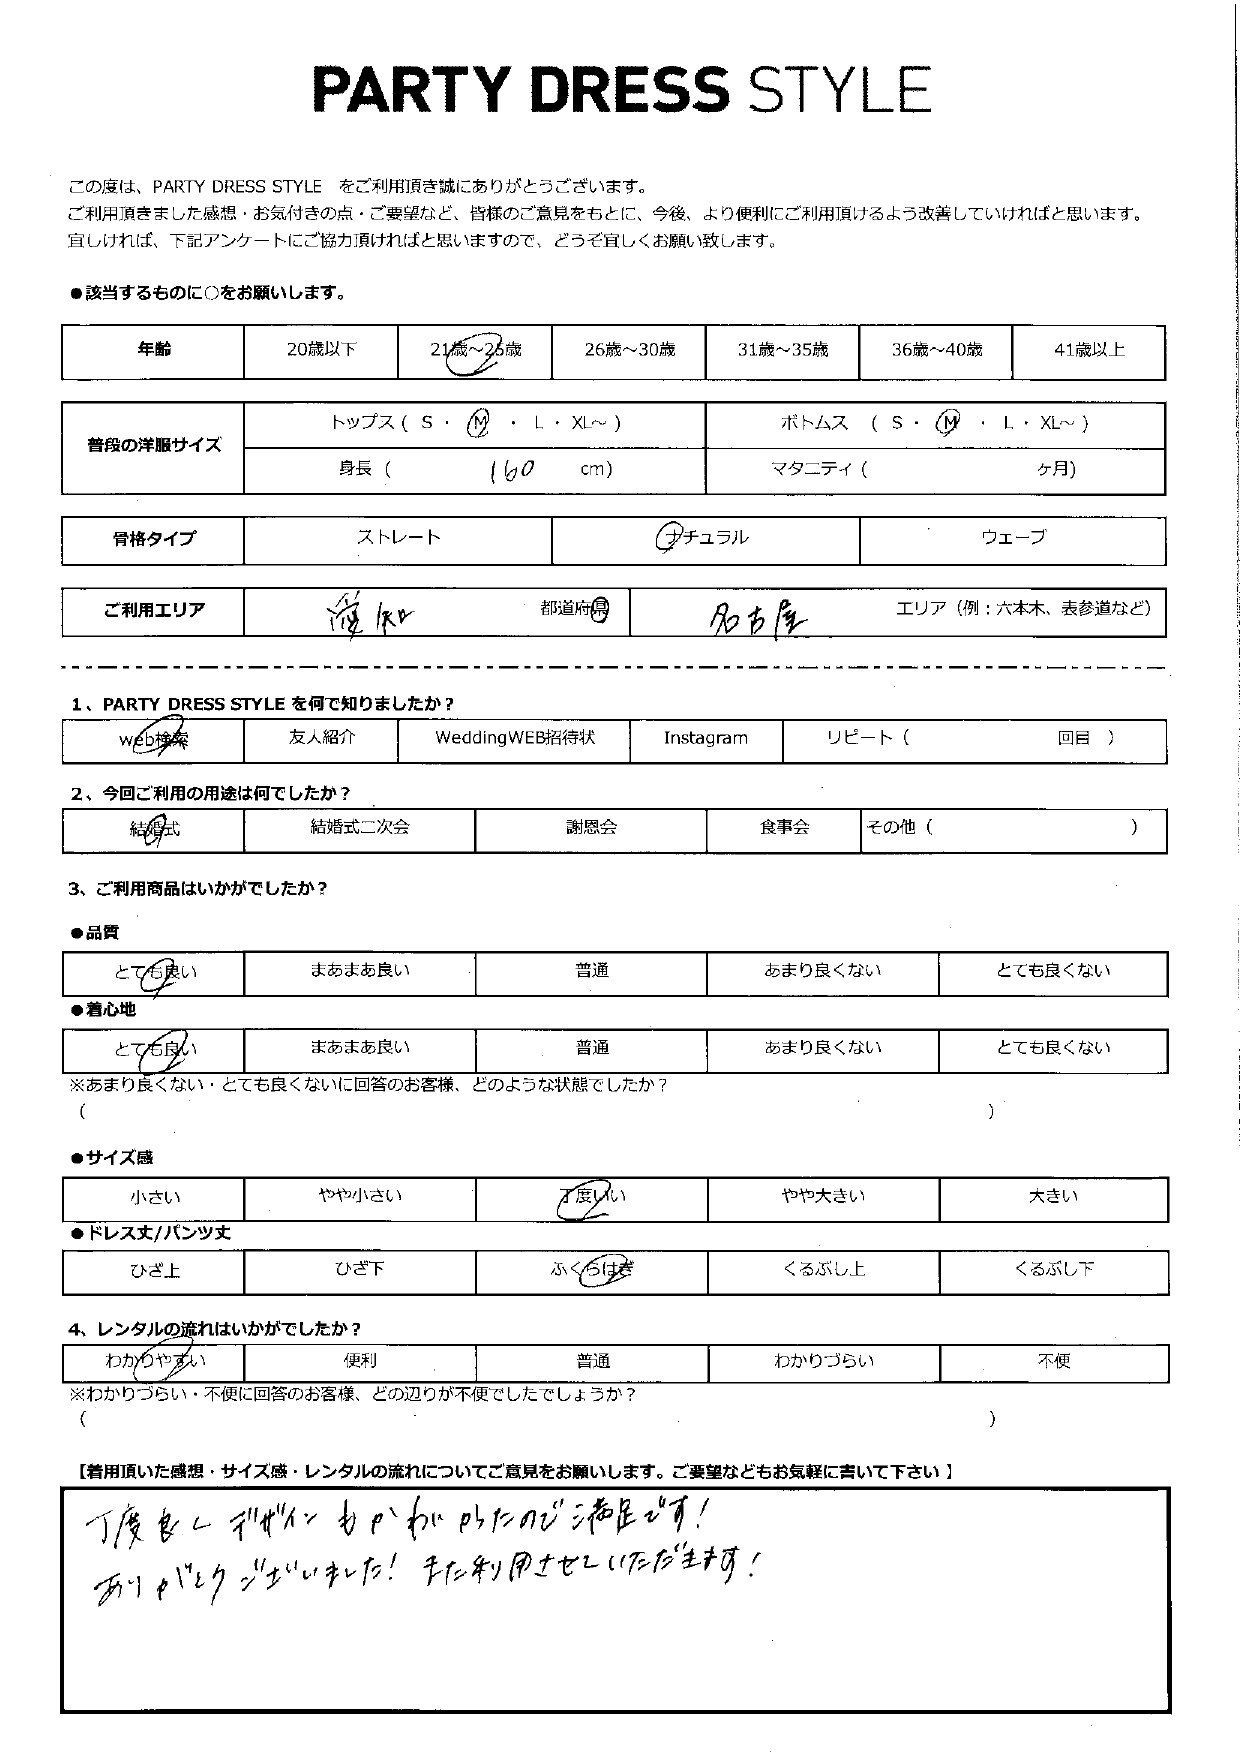 PARTY DRESS STYLE
この度は、PARTY DRESS STYLE　をご利用頂き誠にありがとうございます。
ご利用頂きました感想・お気付きの点・ご要望など、皆様のご意見をもとに、今後、より便利にご利用頂けるよう改善していければと思います。
宜しければ、下記アンケートにご協力頂ければと思いますので、どうぞ宜しくお願い致します。
●該当するものに○をお願いします。
年齢 20歳以下 21歳～25歳 26歳～30歳 31歳～35歳 36歳～40歳 41歳以上
普段の洋服サイズ
トップス ( S ・ M ・ L ・ XL～ ) ボトムス ( S ・ M ・ L ・ XL～ )
身長 ( 160 cm) マタニティ ( ケ月)
骨格タイプ ストレート ナチュラル ウェーブ
ご利用エリア 愛知 都道府県 名古屋 エリア（例：六本木、表参道など）
1、PARTY DRESS STYLE を何で知りましたか？
web検索 友人紹介 WeddingWEB招待状 Instagram リピート ( 回目 )
2、今回ご利用の用途は何でしたか？
結婚式 結婚式二次会 謝恩会 食事会 その他 ( )
3、ご利用商品はいかがでしたか？
●品質
とても良い まあまあ良い 普通 あまり良くない とても良くない
●着心地
とても良い まあまあ良い 普通 あまり良くない とても良くない
※あまり良くない・とても良くないに回答のお客様、どのような状態でしたか？
( )
●サイズ感
小さい やや小さい 丁度いい やや大きい 大きい
●ドレス丈/パンツ丈
ひざ上 ひざ下 ふくらはぎ くるぶし上 くるぶし下
4、レンタルの流れはいかがでしたか？
わかりやすい 便利 普通 わかりづらい 不便
※わかりづらい・不便に回答のお客様、どの辺りが不便でしたでしょうか？
( )
【着用頂いた感想・サイズ感・レンタルの流れについてご意見をお願いします。ご要望などもお気軽に書いて下さい】
丁度良く デザインもかわいかったので満足です！
ありがとうございました！また利用させていただきます！